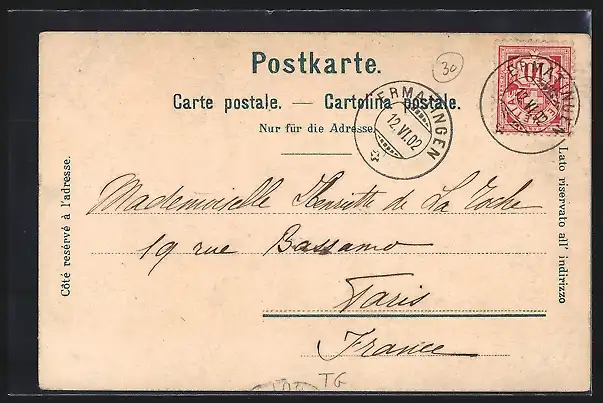 Postkarte.
30
Carte postale. — Cartolina postale.
Nur für die Adresse.
ERMATINGEN
12.VI.02
ERMATINGEN
12.VI.02
Côté resérvé à l'adresse.
Lato riservato all' indirizzo
Mademoiselle Henriette de La Roche
19 rue Bassano
Paris
France
TG